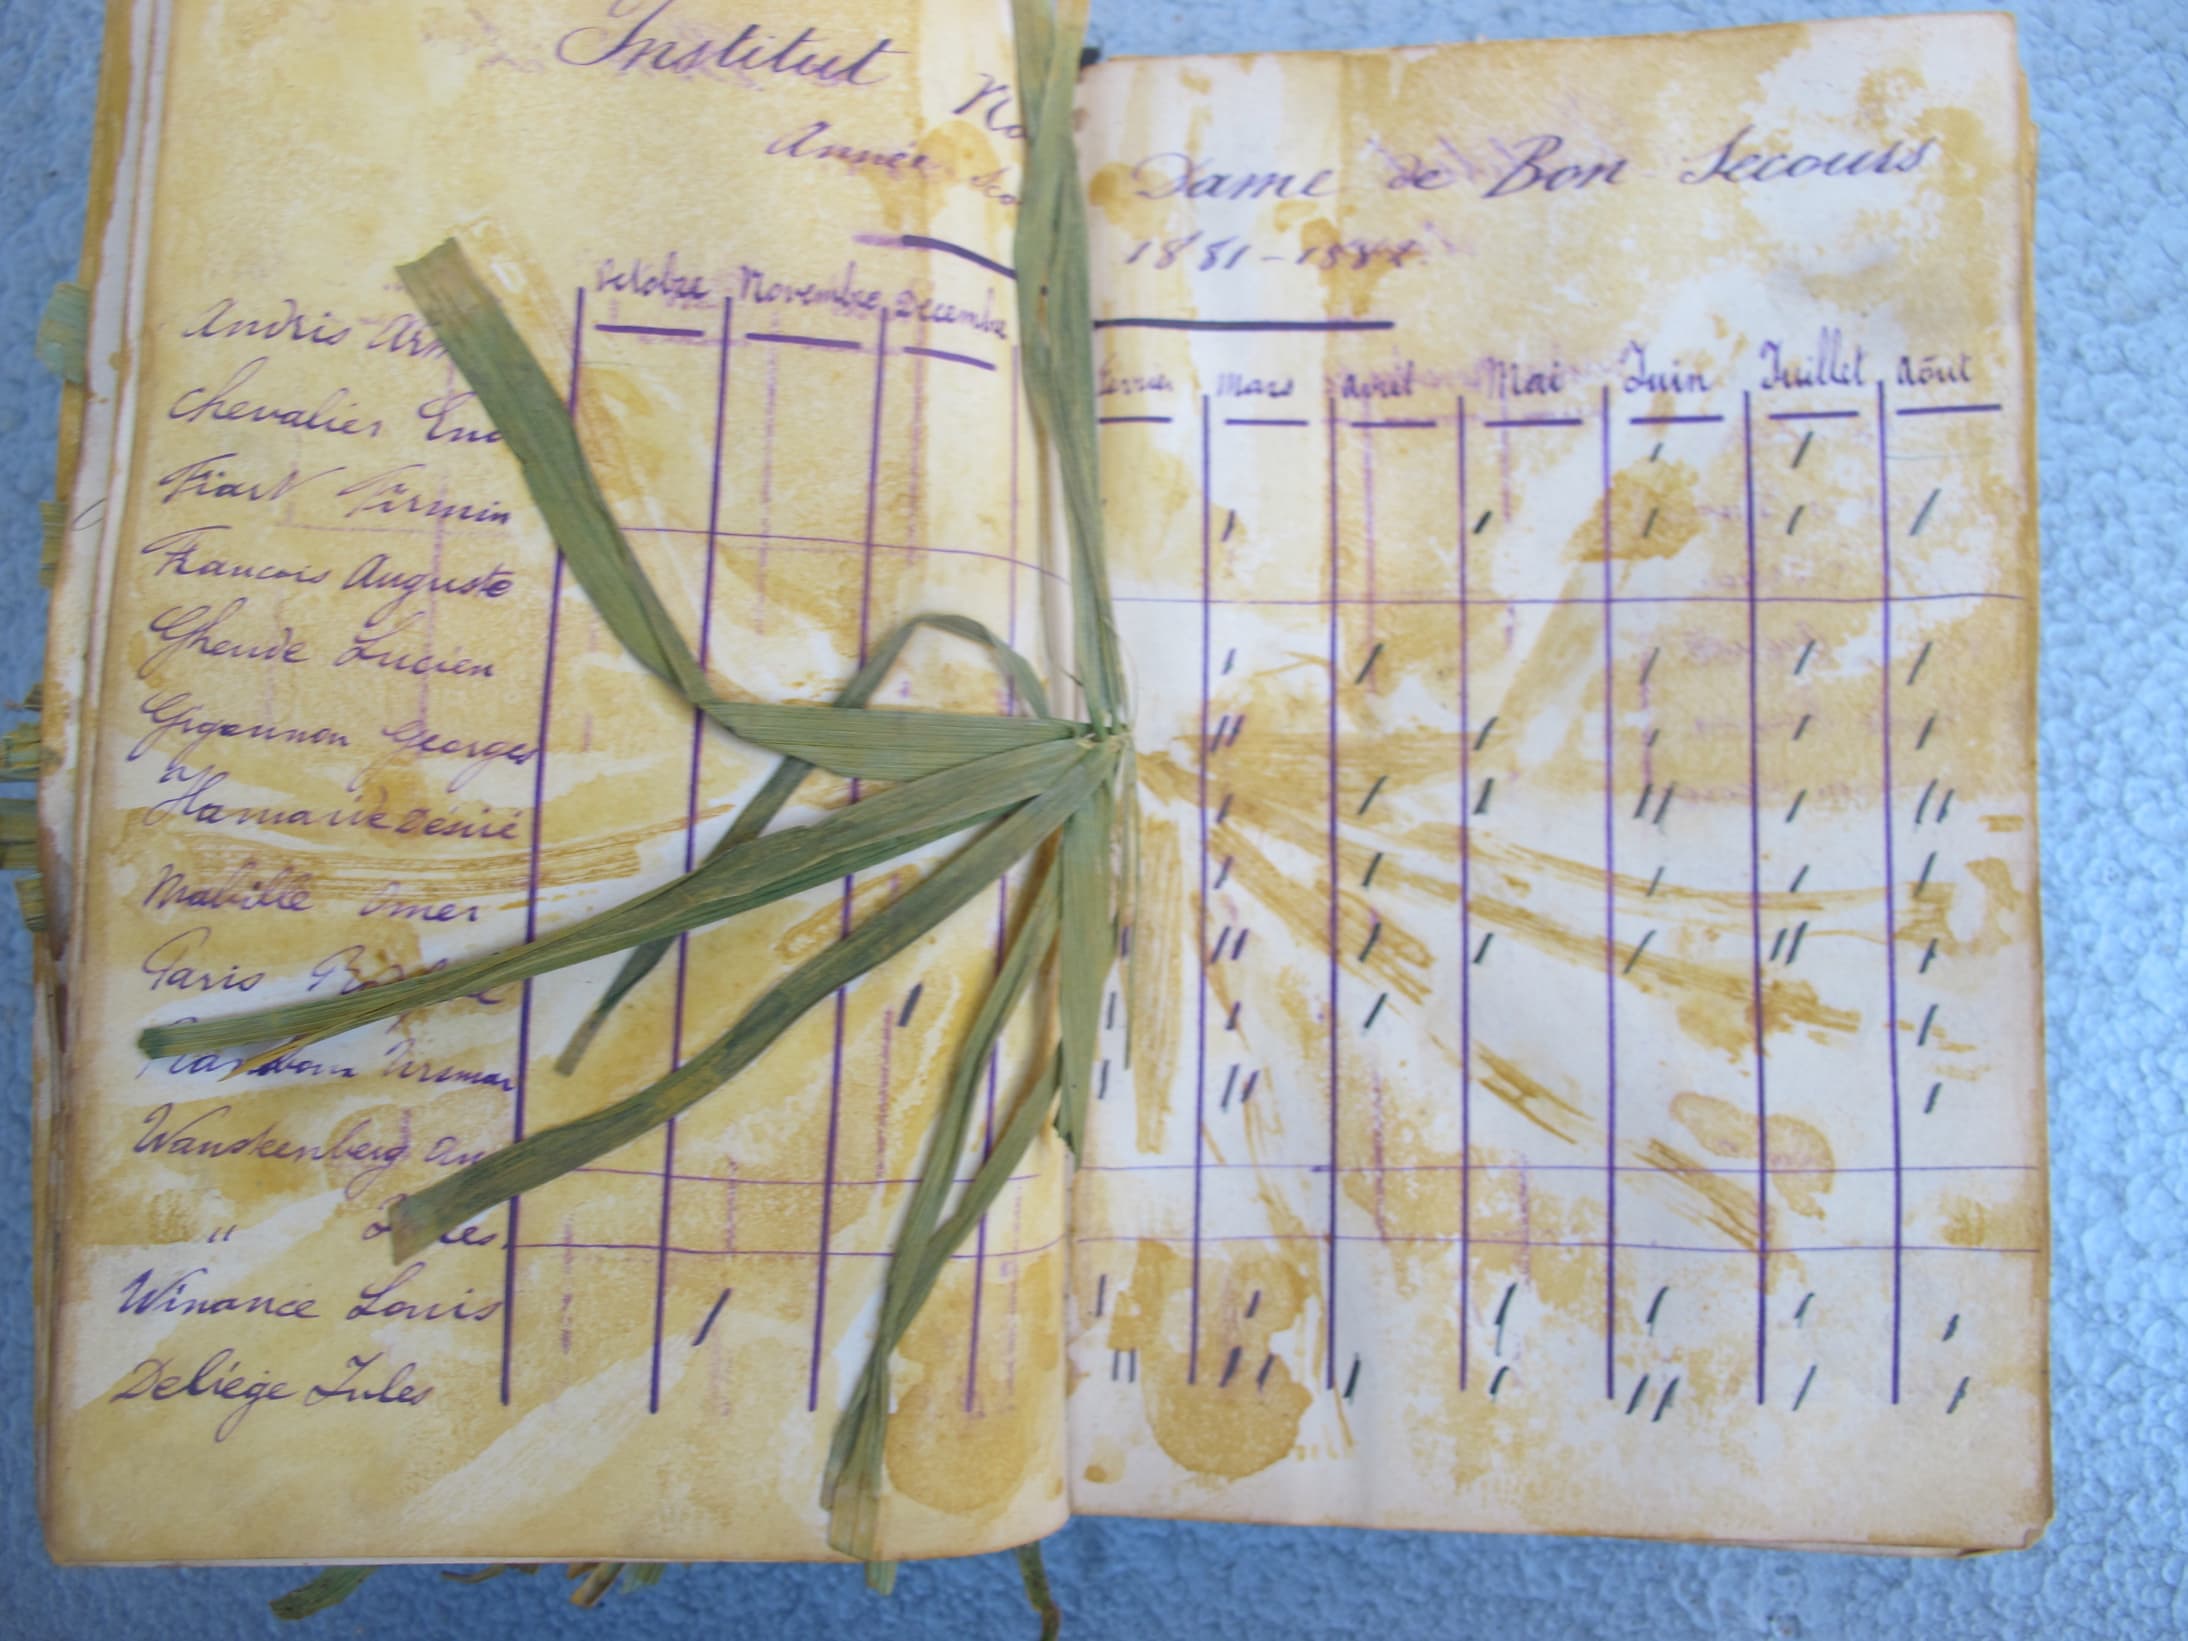 Institut
Dame de Bon Secours
Année
1881-188
Octobre Novembre Decembre
Mars Avril Mai Juin Juillet Aôut
Andris
Chevalier
Fiart Firmin
Francois Auguste
Gheude Lucien
Georges
Désiré
Mabille Omer
Paris
Wanskenberg
"
Winance Louis
Deliége Jules